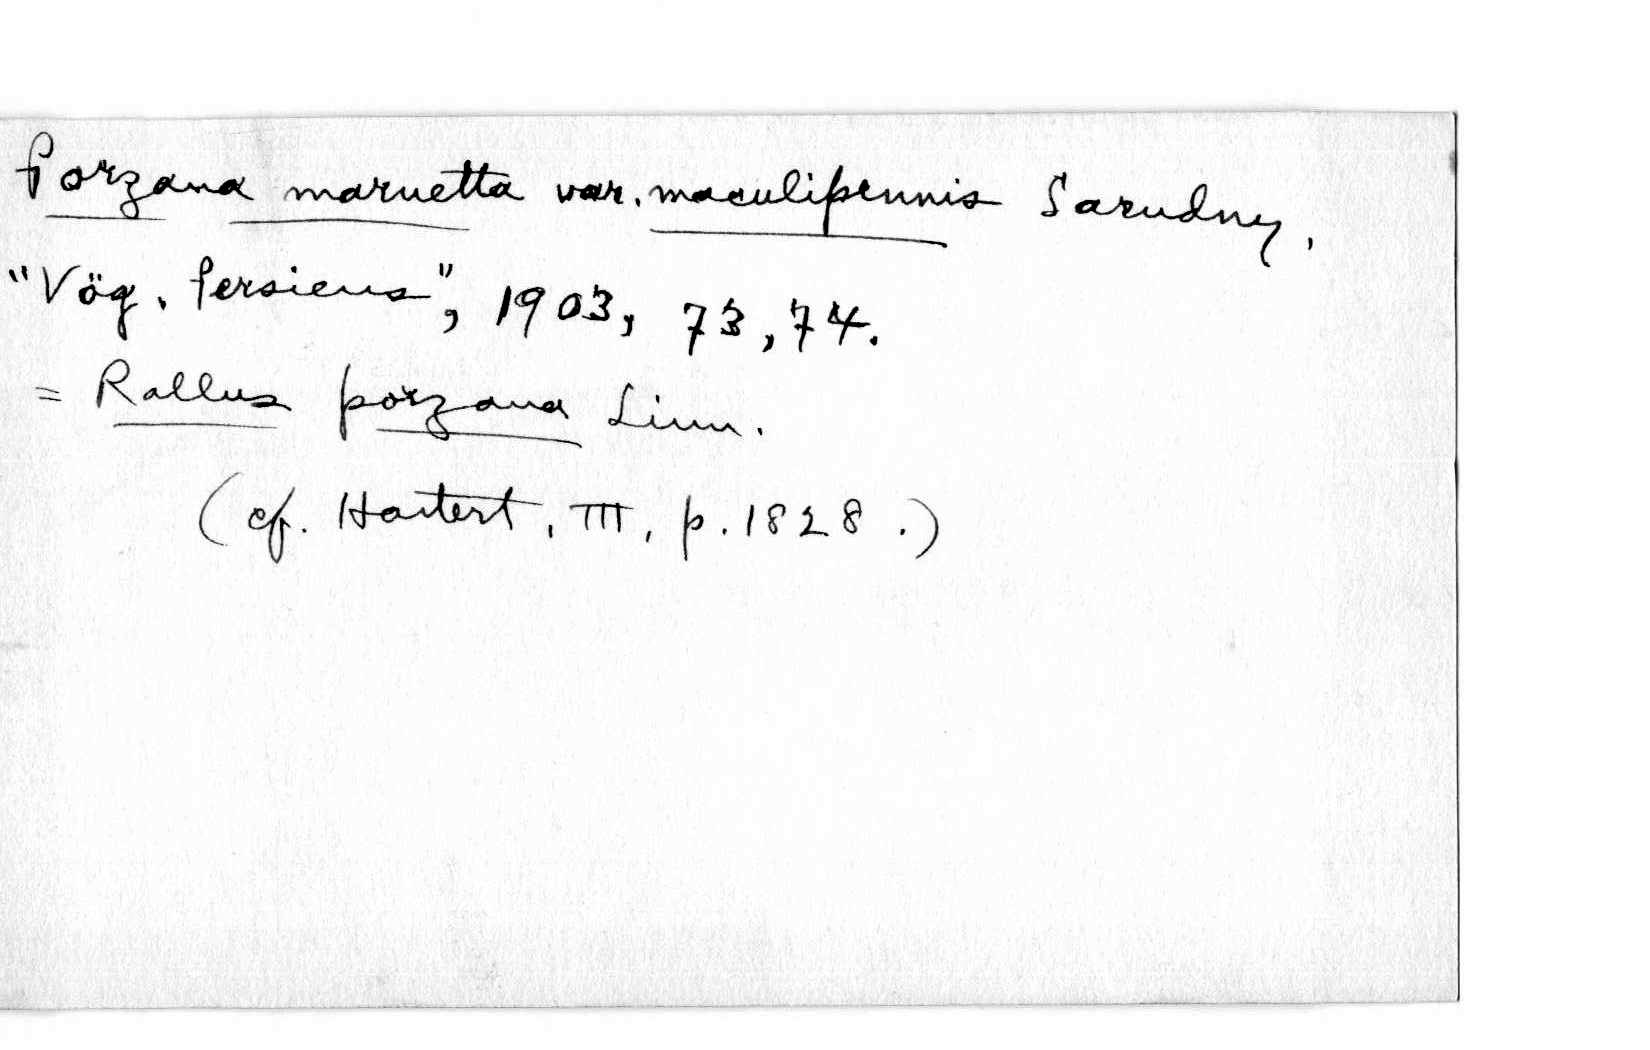 Porzana maruetta var. maculipennis Sarudny,
"Vög. Persiens", 1903, 73, 74.
= Rallus porzana Linn.
(cf. Hartert, III, p. 1828.)